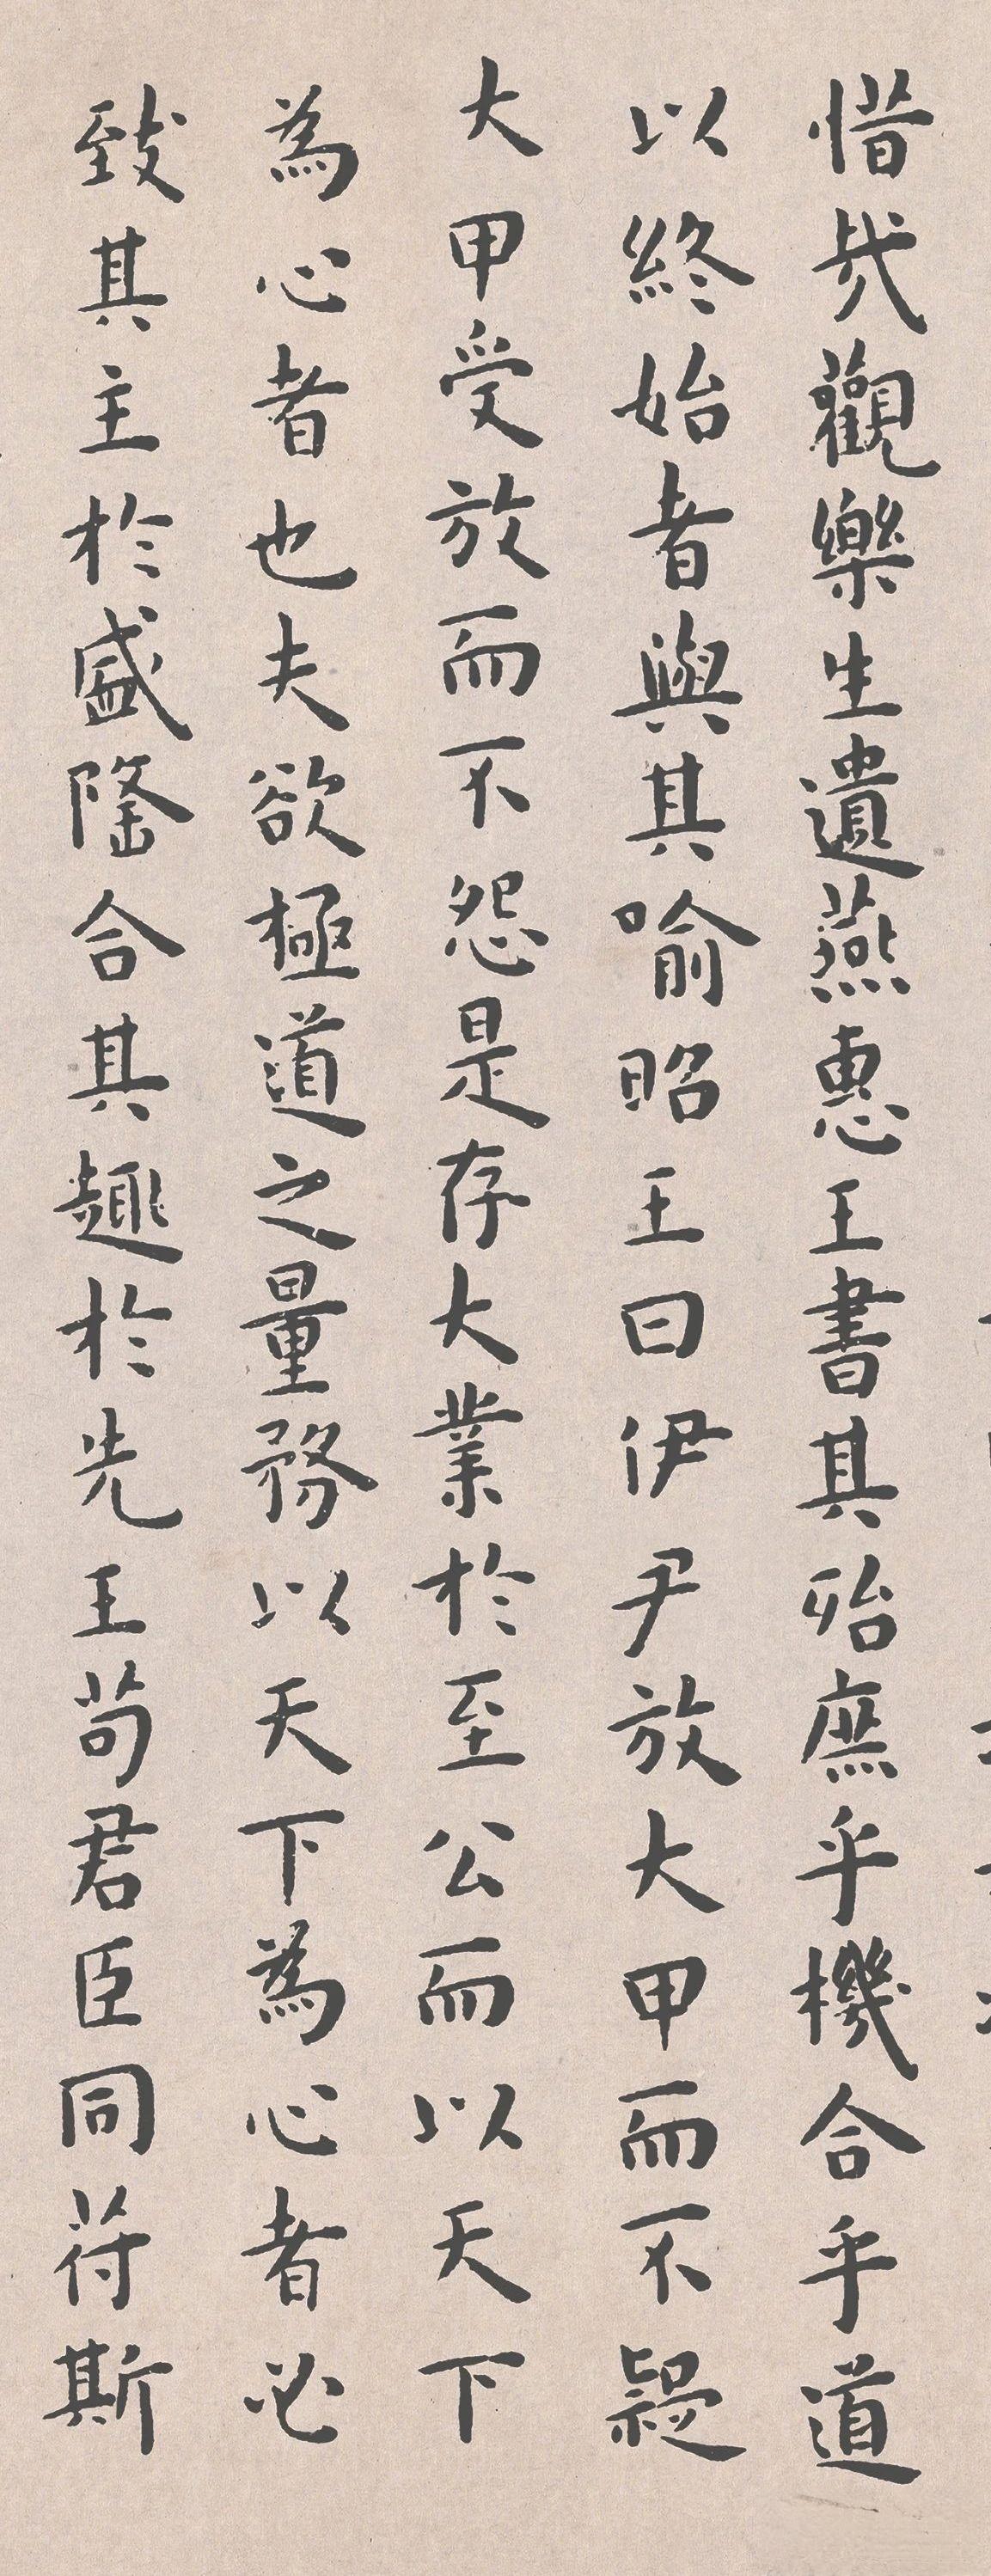 惜哉觀樂生遺燕惠王書其殆庶乎機合乎道
以終始者與其喻昭王曰伊尹放大甲而不疑
大甲受放而不怨是存大業於至公而以天下
為心者也夫欲極道之量務以天下為心者必
致其主於盛隆合其趣於先王苟君臣同符斯